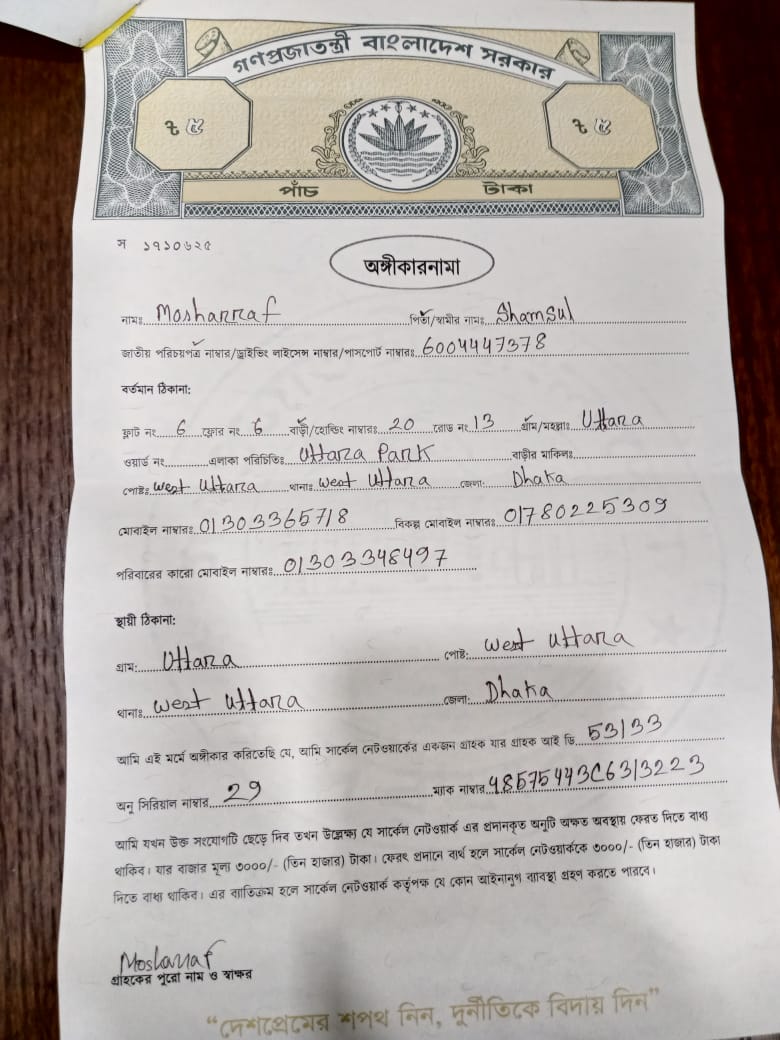 গণপ্রজাতন্ত্রী বাংলাদেশ সরকার
৳ ৫ ৳ ৫
পাঁচ টাকা
স ১৭১০৬২৫
অঙ্গীকারনামা
নামঃ Mosharraf পিতা/স্বামীর নামঃ Shamsul
জাতীয় পরিচয়পত্র নাম্বার/ড্রাইভিং লাইসেন্স নাম্বার/পাসপোর্ট নাম্বারঃ 6004447378
বর্তমান ঠিকানা:
ফ্লাট নং 6 ফ্লোর নং 6 বাড়ী/হোল্ডিং নাম্বারঃ 20 রোড নং 13 গ্রাম/মহল্লাঃ Uttara
ওয়ার্ড নং এলাকা পরিচিতিঃ Uttara Park বাড়ীর মালিকঃ
পোষ্টঃ West Uttara থানাঃ West Uttara জেলা: Dhaka
মোবাইল নাম্বারঃ 01303365718 বিকল্প মোবাইল নাম্বারঃ 01780225309
পরিবারের কারো মোবাইল নাম্বারঃ 01303348497
স্থায়ী ঠিকানা:
গ্রাম: Uttara পোষ্ট: West Uttara
থানাঃ West Uttara জেলা: Dhaka
আমি এই মর্মে অঙ্গীকার করিতেছি যে, আমি সার্কেল নেটওয়ার্কের একজন গ্রাহক যার গ্রাহক আই ডি 53133
অনু সিরিয়াল নাম্বার 29 ম্যাক নাম্বার 48575443C6313223
আমি যখন উক্ত সংযোগটি ছেড়ে দিব তখন উল্লেক্ষ্য যে সার্কেল নেটওয়ার্ক এর প্রদানকৃত অনুটি অক্ষত অবস্থায় ফেরত দিতে বাধ্য
থাকিব। যার বাজার মূল্য ৩০০০/- (তিন হাজার) টাকা। ফেরৎ প্রদানে ব্যর্থ হলে সার্কেল নেটওয়ার্ককে ৩০০০/- (তিন হাজার) টাকা
দিতে বাধ্য থাকিব। এর ব্যতিক্রম হলে সার্কেল নেটওয়ার্ক কর্তৃপক্ষ যে কোন আইনানুগ ব্যাবস্থা গ্রহণ করতে পারবে।
Mosharraf
গ্রাহকের পুরো নাম ও স্বাক্ষর
“দেশপ্রেমের শপথ নিন, দুর্নীতিকে বিদায় দিন”